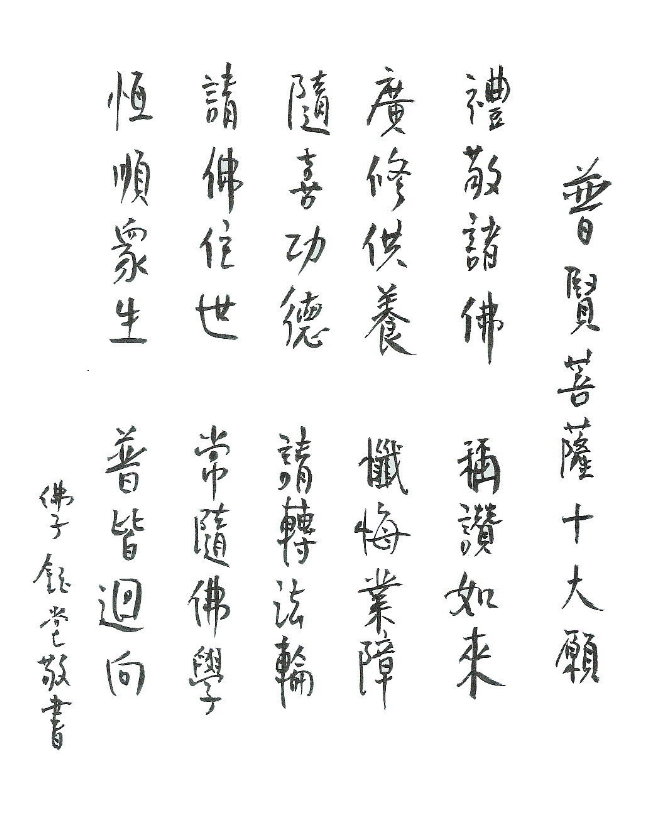 普賢菩薩十大願
禮敬諸佛 稱讚如來
廣修供養 懺悔業障
隨喜功德 請轉法輪
請佛住世 常隨佛學
恆順眾生 普皆迴向
佛子 敬書